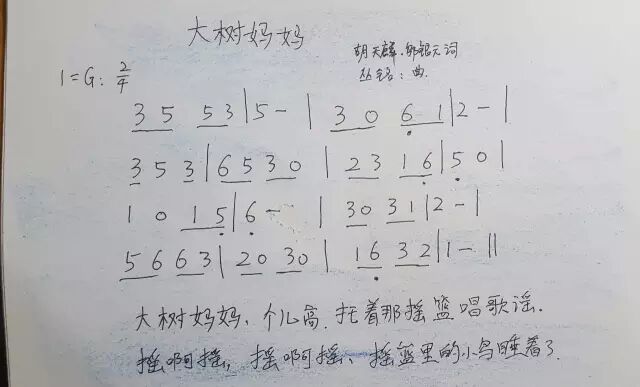 大树妈妈
胡天麟.邬银元词
丛铭:曲.
1=G: 2/4
3 5 5 3 | 5 - | 3 0 6̣ 1 | 2 - |
3 5 3 | 6 5 3 0 | 2 3 1 6̣ | 5̣ 0 |
1 0 1 5̣ | 6̣ - | 3 0 3 1 | 2 - |
5 6 6 3 | 2 0 3 0 | 1 6̣ 3 2 | 1 - ||
大树妈妈、个儿高.托着那摇篮唱歌谣.
摇啊摇,摇啊摇、摇篮里的小鸟睡着了.